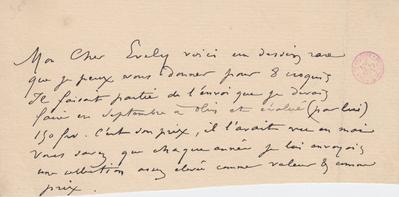 Mon Cher Evely voici un dessin rare
que je peux vous donner pour 8 croquis
Il faisait partie de l'envoi que je devais
faire en septembre à et évalué (par lui)
150 frs. C'est son prix, il l'avait vue en main
vous savez que chaque année je lui envoyais
une collection assez élevée comme valeur & comme
prix.